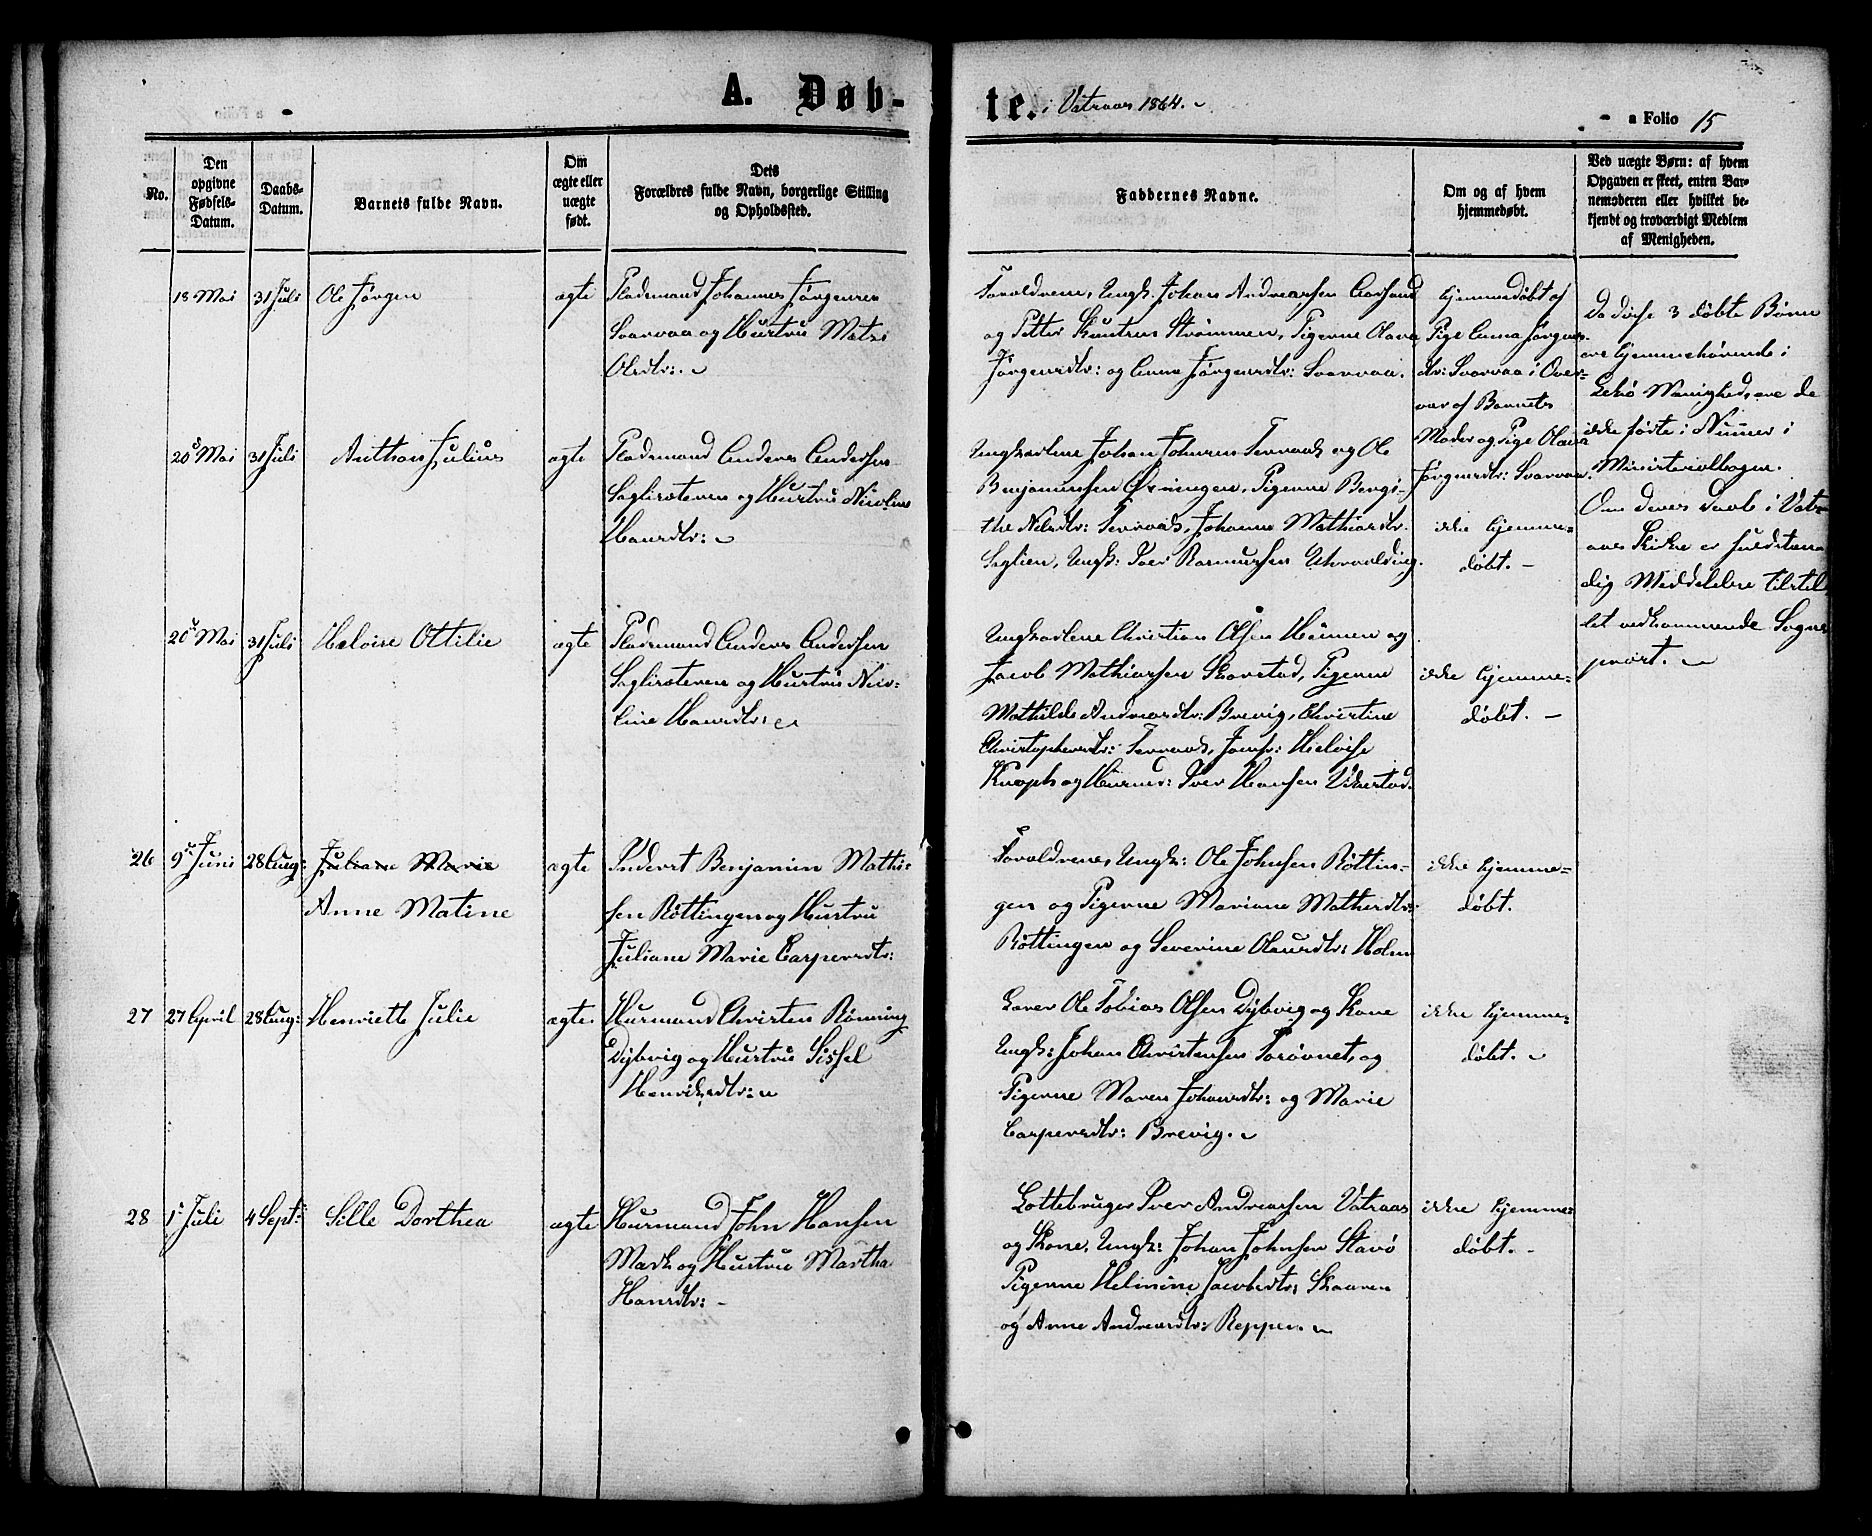 A. Døb-
te. i Vatraas 1864.
a Folio 15
No.
Den
opgivne
Fødsels-
Datum.
Daabs-
Datum.
Barnets fulde Navn.
Om
ægte eller
uægte
født.
Dets
Forældres fulde Navn, borgerlige Stilling
og Opholdssted.
Faddernes Navne.
Om og af hvem
hjemmedøbt.
Ved uægte Børn: af hvem
Opgaven er skeet, enten Bar-
nemoderen eller hvilket be-
kjendt og troværdigt Medlem
af Menigheden.
18 Mai
31 Juli
Ole Jørgen
ægte
Pladsmand Johannes Jørgensen
Svarvaa og Hustru Matzi
Olsdtr:
Forældrene, Ungk: Johan Andreassen Aarsand
og Petter Knutsen Strømmen, Pigerne Olava
Jørgensdtr: og Anna Jørgensdtr: Svarvaa.
hjemmedøbt af
Pige Anna Jørgens-
dtr: Svarvaa i Over-
vær af Barnets
Moder og Pige Olava
Jørgensdtr: Svarvaa.
Da disse 3 døbte Børn
ere hjemmehørende i
Lekø Menighed, ere de
ikke førte i Numer i
Ministerialbogen.
Om deres Daab i Vat-
aas Kirke er fuldstæn-
dig Meddelelse tilstil-
let vedkommende Sogne-
præst.
20 Mai
31 Juli
Anthon Julius
ægte
Pladsmand Anders Andersen
Sagliæteren og Hustru Nicoline
Hansdtr:
Ungkarlene Johan Johnsen Terraad og Ole
Benjaminsen Ørningen, Pigerne Bergi-
the Nilsdtr: Terraad, Johanna Mathiasdtr.
Saglien, Ungk: Iver Rasmussen
ikke hjemme-
døbt. –
20 Mai
31 Juli
Heloise Ottilie
ægte
Pladsmand Anders Andersen
Sagliæteren og Hustru Nico-
line Hansdtr:
Ungkarlene Christian Olsen Heimen og
Jacob Mathiassen Skarstad, Pigerne
Mathilde Andreasdtr: Brevig, Christine
Christophersdtr: Terraad, Jomfr: Heloise
Knoph og Huusmd: Iver Hansen Vikestad.
ikke hjemme-
døbt. –
26
9 Juni
28 Aug:
Juliane Marie
Anne Matine
ægte
Inderst Benjamin Mathi-
sen Røttingen og Hustru
Juliane Marie Caspersdtr:
Forældrene, Ungk: Ole Johnsen Røttin-
gen og Pigerne Mariane Mathisdtr:
Røttingen og Severine Olausdtr: Holm
ikke hjemme-
døbt.
27
27 April
28 Aug:
Henriette Julie
ægte.
Husmand Christen Rønning
Dybvig og Hustru Sissel
Henriksdtr:
Lærer Ole Tobias Olsen Dybvig og Kone
Ungk: Johan Christensen Torøvnet, og
Pigerne Maren Johansdtr: og Marie
Caspersdtr: Brevig.
ikke hjemme-
døbt.
28
1 Juli
4 Sept:
Sille Dorthea
ægte
Husmand John Hansen
Mark og Hustru Martha
Hansdtr: –
Lottebruger Iver Andreassen Vatraas
og Kone, Ungk: Johan Johnsen Stavø
Pigerne Helmine Jacobsdtr: Skaaren
og Anne Andreasdtr: Reppen.
ikke hjemme-
døbt. –